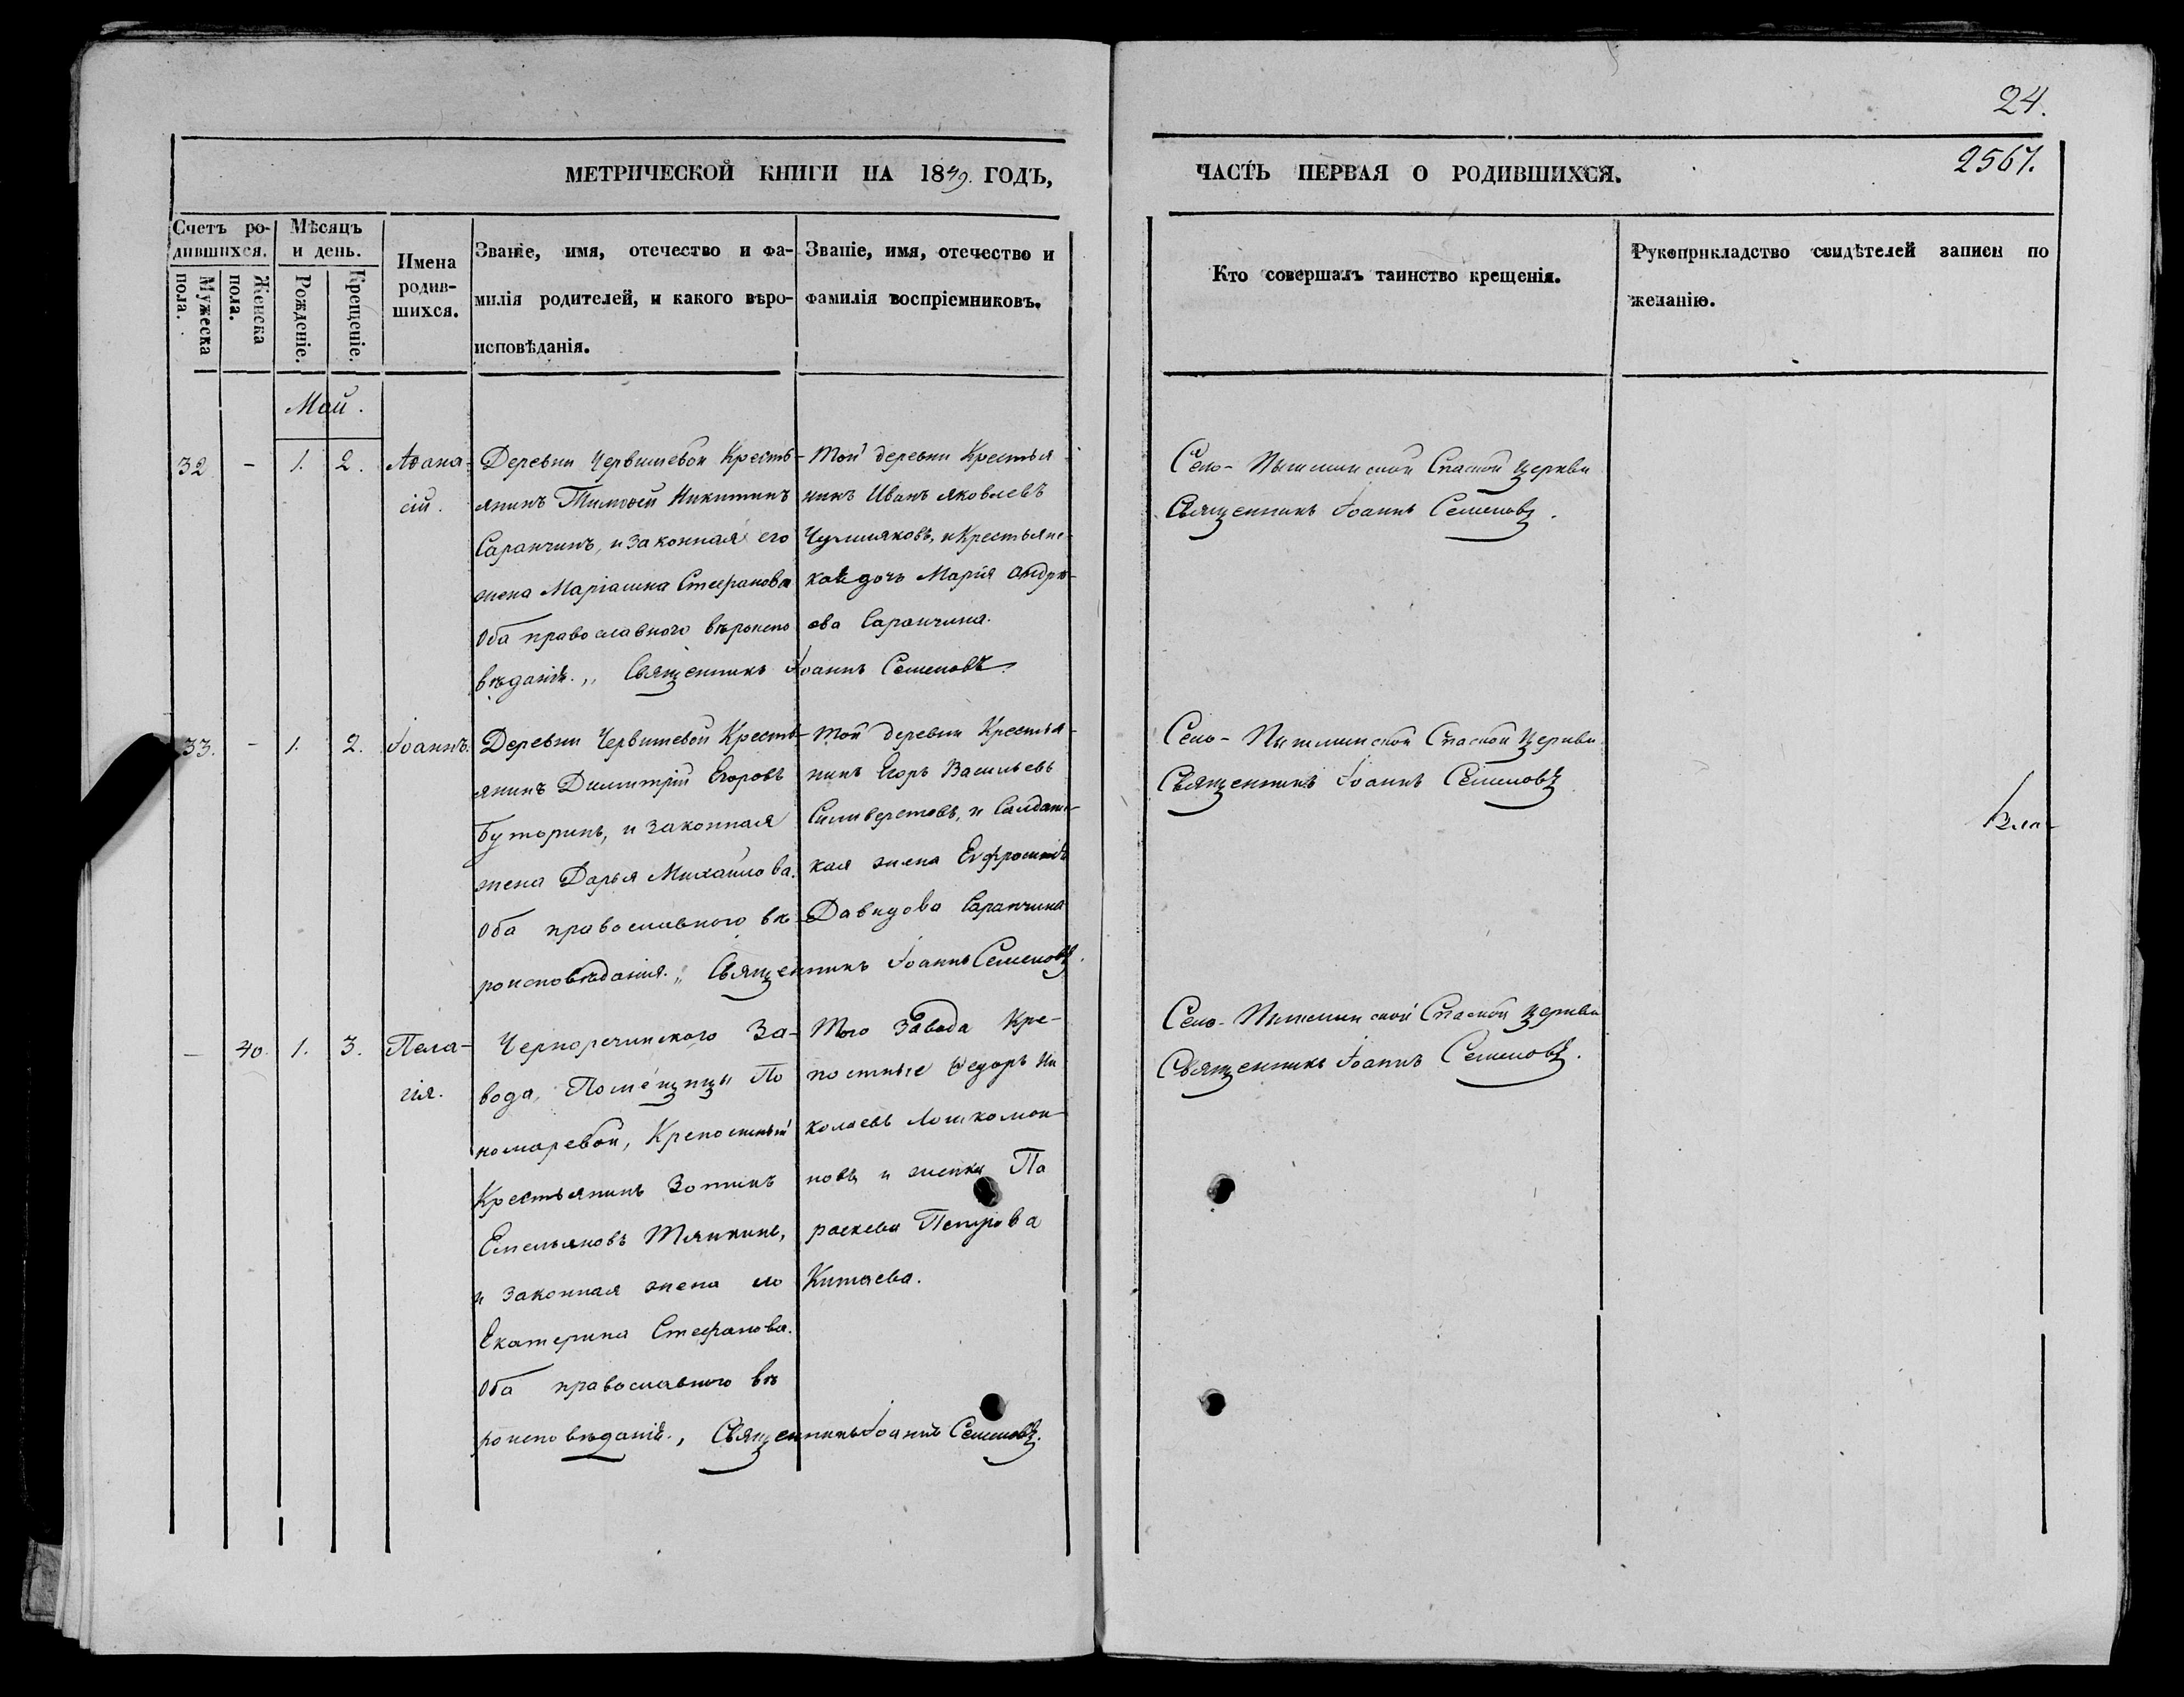 24.
МЕТРИЧЕСКОЙ КНИГИ НА 1849. ГОДЪ,
ЧАСТЬ ПЕРВАЯ О РОДИВШИХСЯ.
2567.
Счетъ ро-
дившихся.
Мужеска
пола.
Женска
пола.
Мѣсяцъ
и день.
Рожденіе.
Крещеніе.
Имена
родив-
шихся.
Званіе, имя, отечество и фа-
милія родителей, и какого вѣро-
исповѣданія.
Званіе, имя, отечество и
фамилія воспріемниковъ.
Кто совершалъ таинство крещенія.
Рукоприкладство свидѣтелей записи по
желанію.
Май.
32
-
1.
2.
Аѳана-
сій.
Деревни Червишевой Кресть-
янинъ Тимоѳей Никитинъ
Саранчинъ, и законная его
жена Маріамна Стефанова
Оба православного вѣроиспо
вѣданія.,, Священникъ Іоаннъ Семеновъ
Той деревни Крестья
нинъ Иванъ Яковлевъ
Чумляковъ, и Крестьянс-
кая дочь Марія Андре-
ева Саранчина.
Село-Пышминской Спаской Церкви
Священникъ Іоаннъ Семеновъ.
33.
-
1.
2.
Іоаннъ.
Деревни Червишевой Кресть-
янинъ Димитрій Егоровъ
Буторинъ, и законная
жена Дарья Михайлова.
Оба православного вѣ-
роисповѣданія.,, Священникъ Іоаннъ Семеновъ.
Той деревни Крестья-
нинъ Егоръ Васильевъ
Силиверстовъ, и Салдатс-
кая жена Евфросинія
Давидова Саранчина
Село-Пышминской Спаской Церкви
Священникъ Іоаннъ Семеновъ
-
40.
1.
3.
Пела-
гія.
Черноречинского За-
вода, Помещицы По
номаревой, Крепостный
Крестьянинъ Зотикъ
Емельяновъ Тяпкинъ,
и законная жена его
Екатерина Стефанова.
Оба православного вѣ
роисповѣданія., Священникъ Іоаннъ Семеновъ.
Того Завода Кре-
постные Ѳедоръ Ни
колаевъ Лошкомои-
новъ и женка Па
раскева Петрова
Китаева.
Село-Пышминской Спаской Церкви
Священникъ Іоаннъ Семеновъ.